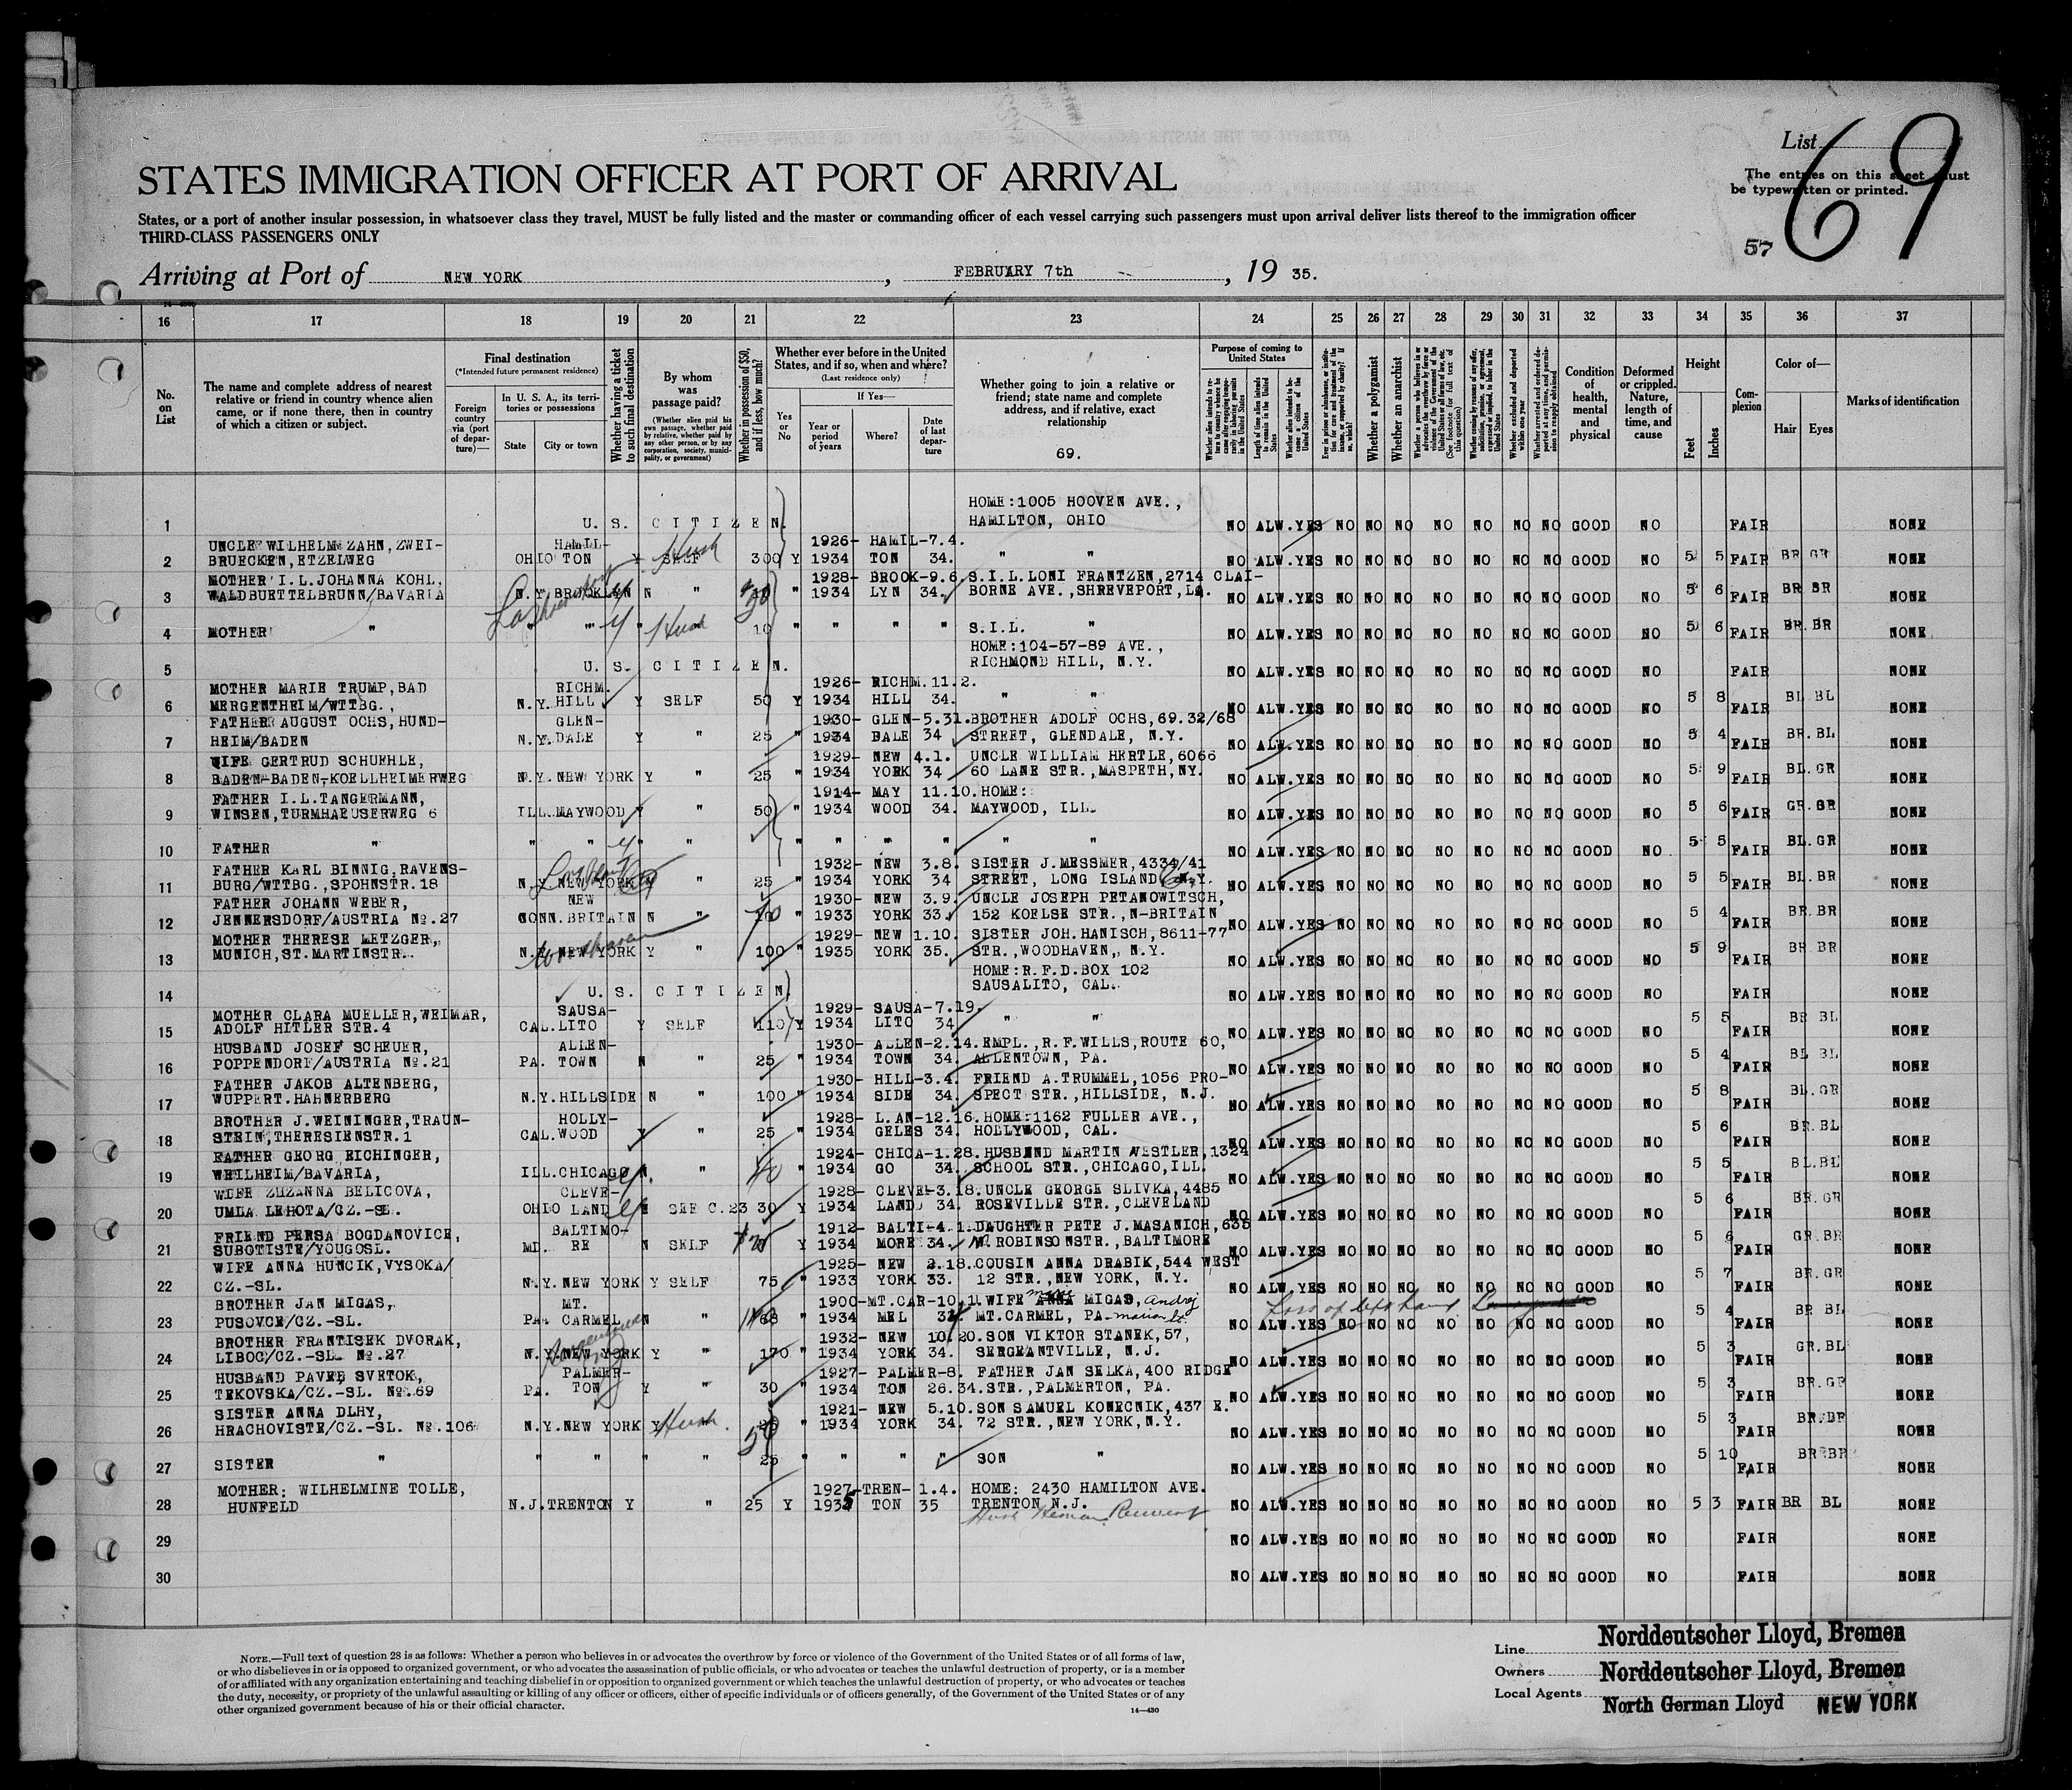 List
69
The entries on this sheet must
be typewritten or printed.
57
STATES IMMIGRATION OFFICER AT PORT OF ARRIVAL
States, or a port of another insular possession, in whatsoever class they travel, MUST be fully listed and the master or commanding officer of each vessel carrying such passengers must upon arrival deliver lists thereof to the immigration officer
THIRD-CLASS PASSENGERS ONLY
Arriving at Port of NEW YORK, FEBRUARY 7th, 19 35.
16 17 18 19 20 21 22 23 24 25 26 27 28 29 30 31 32 33 34 35 36 37
No. on List
The name and complete address of nearest relative or friend in country whence alien came, or if none there, then in country of which a citizen or subject.
Final destination
(*Intended future permanent residence)
Foreign country via (port of departure)—
In U. S. A., its territories or possessions
State City or town
Whether having a ticket to such final destination
By whom was passage paid?
(Whether alien paid his own passage, whether paid by relative, whether paid by any other person, or by any corporation, society, municipality, or government)
Whether in possession of $50, and if less, how much?
Whether ever before in the United States, and if so, when and where?
(Last residence only)
Yes or No
If Yes—
Year or period of years
Where?
Date of last departure
Whether going to join a relative or friend; state name and complete address, and if relative, exact relationship
69.
Purpose of coming to United States
Length of time alien intends to remain in the United States
Whether alien intends to become a citizen of the United States
Whether a polygamist
Whether an anarchist
Condition of health, mental and physical
Deformed or crippled. Nature, length of time, and cause
Height
Feet Inches
Complexion
Color of—
Hair Eyes
Marks of identification
1 U. S. CITIZEN. HOME:1005 HOOVEN AVE., HAMILTON, OHIO NO ALW.YES NO NO NO NO NO NO NO GOOD NO FAIR NONE
2 UNCLE WILHELM ZAHN, ZWEIBRUECKEN, ETZELWEG OHIO HAMILTON Y SELF 300 Y 1926-1934 HAMILTON 7.4.34. " " NO ALW.YES NO NO NO NO NO NO NO GOOD NO 5 5 FAIR BR GR NONE
3 MOTHER I.L.JOHANNA KOHL, WALDBUETTELBRUNN/BAVARIA N.Y. BROOKLYN N " " 1928-1934 BROOKLYN 9.6.34. S.I.L.LONI FRANTZEN,2714 CLAIBORNE AVE.,SHREVEPORT,LA. NO ALW.YES NO NO NO NO NO NO NO GOOD NO 5 6 FAIR BR BR NONE
4 MOTHER " " " " 10 " " " " S.I.L. " NO ALW.YES NO NO NO NO NO NO NO GOOD NO 5 6 FAIR BR.BR NONE
5 U. S. CITIZEN. HOME:104-57-89 AVE., RICHMOND HILL, N.Y. NO ALW.YES NO NO NO NO NO NO NO GOOD NO FAIR NONE
6 MOTHER MARIE TRUMP,BAD MERGENTHEIM/WTTBG., N.Y. RICHM. HILL Y SELF 50 Y 1926-1934 RICHM. HILL 11.2.34. " " NO ALW.YES NO NO NO NO NO NO NO GOOD NO 5 8 FAIR BL.BL NONE
7 FATHER AUGUST OCHS,HUNDHEIM/BADEN N.Y. GLENDALE Y " 25 " 1930-1934 GLENDALE 5.31.34 BROTHER ADOLF OCHS,69.32/68 STREET, GLENDALE, N.Y. NO ALW.YES NO NO NO NO NO NO NO GOOD NO 5 4 FAIR BR.BL NONE
8 WIFE GERTRUD SCHUEHLE, BADEN-BADEN-KOELLHEIMERWEG N.Y. NEW YORK Y " 25 " 1929-1934 NEW YORK 4.1.34 UNCLE WILLIAM HERTLE,6066 60 LANE STR.,MASPETH,NY. NO ALW.YES NO NO NO NO NO NO NO GOOD NO 5 9 FAIR BL.GR NONE
9 FATHER I.L.TANGERMANN, WINSEN,TURMHAEUSERWEG 6 ILL. MAYWOOD Y " 50 " 1914-1934 MAYWOOD 11.10.34. HOME: MAYWOOD, ILL. NO ALW.YES NO NO NO NO NO NO NO GOOD NO 5 6 FAIR GR.BR NONE
10 FATHER " " " " " " " " " " " NO ALW.YES NO NO NO NO NO NO NO GOOD NO 5 5 FAIR BL.GR NONE
11 FATHER KARL BINNIG,RAVENSBURG/WTTBG.,SPOHNSTR.18 N.Y. NEW YORK " 25 " 1932-1934 NEW YORK 3.8.34 SISTER J.MESSMER,4334/41 STREET, LONG ISLAND N.Y. NO ALW.YES NO NO NO NO NO NO NO GOOD NO 5 5 FAIR BL.BR NONE
12 FATHER JOHANN WEBER, JENNERSDORF/AUSTRIA No.27 CONN. NEW BRITAIN N " " 1930-1933 NEW YORK 3.9.33. UNCLE JOSEPH PETANOWITSCH, 152 KOELSE STR.,N-BRITAIN NO ALW.YES NO NO NO NO NO NO NO GOOD NO 5 4 FAIR BR.BR NONE
13 MOTHER THERESE LETZGER, MUNICH,ST.MARTINSTR. N.Y. NEW YORK Y " 100 " 1929-1935 NEW YORK 1.10.35. SISTER JOH.HANISCH,8611-77 STR.,WOODHAVEN, N.Y. NO ALW.YES NO NO NO NO NO NO NO GOOD NO 5 9 FAIR BR BR NONE
14 U. S. CITIZEN. HOME:R.F.D.BOX 102 SAUSALITO, CAL. NO ALW.YES NO NO NO NO NO NO NO GOOD NO FAIR NONE
15 MOTHER CLARA MUELLER,WEIMAR, ADOLF HITLER STR.4 CAL. SAUSALITO Y SELF 110 Y 1929-1934 SAUSALITO 7.19.34 " " NO ALW.YES NO NO NO NO NO NO NO GOOD NO 5 5 FAIR BR BL NONE
16 HUSBAND JOSEF SCHEUER, POPPENDORF/AUSTRIA No.21 PA. ALLENTOWN N " 25 " 1930-1934 ALLENTOWN 2.14.34. EMPL.,R.F.WILLS,ROUTE 60, ALLENTOWN, PA. NO ALW.YES NO NO NO NO NO NO NO GOOD NO 5 4 FAIR BL BL NONE
17 FATHER JAKOB ALTENBERG, WUPPERT.HAHNERBERG N.Y. HILLSIDE N " 100 " 1930-1934 HILLSIDE 3.4.34. FRIEND A.TRUMMEL,1056 PROSPECT STR.,HILLSIDE, N.J. NO ALW.YES NO NO NO NO NO NO NO GOOD NO 5 8 FAIR BL.GR NONE
18 BROTHER J.WEININGER,TRAUNSTEIN,THERESIENSTR.1 CAL. HOLLYWOOD Y " 25 " 1928-1934 L.ANGELES 12.16.34. HOME:1162 FULLER AVE., HOLLYWOOD, CAL. NO ALW.YES NO NO NO NO NO NO NO GOOD NO 5 6 FAIR BR.BL NONE
19 FATHER GEORG EICHINGER, WEILHEIM/BAVARIA, ILL. CHICAGO N " " 1924-1934 CHICAGO 1.28.34. HUSBAND MARTIN WESTLER,1324 SCHOOL STR.,CHICAGO,ILL. NO ALW.YES NO NO NO NO NO NO NO GOOD NO 5 5 FAIR BL.BL NONE
20 WIFE ZUZANNA BELICOVA, UMLA LEHOTA/CZ.-SL. OHIO CLEVELAND N SEE C.23 30 Y 1928-1934 CLEVELAND 3.18.34 UNCLE GEORGE SLIVKA,4485 ROSEVILLE STR.,CLEVELAND NO ALW.YES NO NO NO NO NO NO NO GOOD NO 5 6 FAIR BR.GR NONE
21 FRIEND PERSA BOGDANOVICE, SUBOTISTE/YOUGOSL. MD. BALTIMORE N SELF Y 1912-1934 BALTIMORE 4.1.34. DAUGHTER PETE J.MASANICH,635 W.ROBINSONSTR.,BALTIMORE NO ALW.YES NO NO NO NO NO NO NO GOOD NO 5 6 FAIR GR.BR NONE
22 WIFE ANNA HUNCIK,VYSOKA/CZ.-SL. N.Y. NEW YORK Y SELF 75 " 1925-1933 NEW YORK 2.18.33. COUSIN ANNA DRABIK,544 WEST 12 STR.,NEW YORK, N.Y. NO ALW.YES NO NO NO NO NO NO NO GOOD NO 5 7 FAIR BR.GR NONE
23 BROTHER JAN MIGAS, PUSOVCE/CZ.-SL. PA. MT. CARMEL N " " 1900-1934 MT.CARMEL WIFE ANNA MIGAS, Andrej MT.CARMEL, PA. Loss of left hand NO ALW.YES NO NO NO NO NO NO NO GOOD NO 5 4 FAIR BR BL NONE
24 BROTHER FRANTISEK DVORAK, LIBOC/CZ.-SL. No.27 N.Y. NEW YORK Y " 170 " 1932-1934 NEW YORK 10.20.34. SON VIKTOR STANEK,57, SERGEANTVILLE, N.J. NO ALW.YES NO NO NO NO NO NO NO GOOD NO 5 3 FAIR GR.BL NONE
25 HUSBAND PAVEL SVETOK, TEKOVSKA/CZ.-SL. No.69 PA. PALMERTON Y " 30 " 1927-1934 PALMERTON 8.26.34. FATHER JAN SELKA,400 RIDGE STR.,PALMERTON, PA. NO ALW.YES NO NO NO NO NO NO NO GOOD NO 5 3 FAIR BR.GR NONE
26 SISTER ANNA DLHY, HRACHOVISTE/CZ.-SL. No.106 N.Y. NEW YORK Y " 1921-1934 NEW YORK 5.10.34. SON SAMUEL KONECNIK,437 E. 72 STR.,NEW YORK,N.Y. NO ALW.YES NO NO NO NO NO NO NO GOOD NO 5 3 FAIR BR.BR NONE
27 SISTER " " " " " 25 " " " " SON " NO ALW.YES NO NO NO NO NO NO NO GOOD NO 5 10 FAIR BR BR NONE
28 MOTHER: WILHELMINE TOLLE, HUNFELD N.J. TRENTON Y " 25 Y 1927-1935 TRENTON 1.4.35 HOME: 2430 HAMILTON AVE. TRENTON N.J. NO ALW.YES NO NO NO NO NO NO NO GOOD NO 5 3 FAIR BR BL NONE
29 NO ALW.YES NO NO NO NO NO NO NO GOOD NO FAIR NONE
30 NO ALW.YES NO NO NO NO NO NO NO GOOD NO FAIR NONE
NOTE.—Full text of question 28 is as follows: Whether a person who believes in or advocates the overthrow by force or violence of the Government of the United States or of all forms of law,
or who disbelieves in or is opposed to organized government, or who advocates the assassination of public officials, or who advocates or teaches the unlawful destruction of property, or is a member
of or affiliated with any organization entertaining and teaching disbelief in or opposition to organized government or which teaches the unlawful destruction of property, or who advocates or teaches
the duty, necessity, or propriety of the unlawful assaulting or killing of any officer or officers, either of specific individuals or of officers generally, of the Government of the United States or of any
other organized government because of his or their official character.
14—430
Line Norddeutscher Lloyd, Bremen
Owners Norddeutscher Lloyd, Bremen
Local Agents North German Lloyd NEW YORK